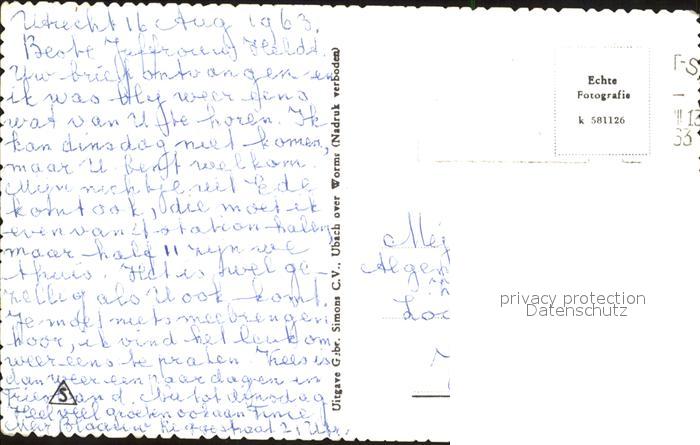 Utrecht 16 Aug 1963.
Beste Juffrouw Heldt.
Uw brief ontvangen en
ik was blij weer eens
wat van U te horen. Ik
kan dinsdag niet komen,
maar U bent welkom.
Mijn nichtje uit Ede
komt ook, die moet ik
even van 't station halen,
maar half 11 zijn we
thuis. Het is wel ge-
zellig als U ook komt.
Je moet niets meebrengen
hoor, ik vind het leuk om
weer eens te praten. Kees is
dan weer een paar dagen in
Friesland. Nu tot dinsdag
Heel veel groeten ook aan Tinie
Mevr Blaauw
Uitgave Gebr. Simons C.V., Ubach over Worms (Nadruk verboden)
Echte
Fotografie
k 581126
S
Mej
Algem
privacy protection
Datenschutz